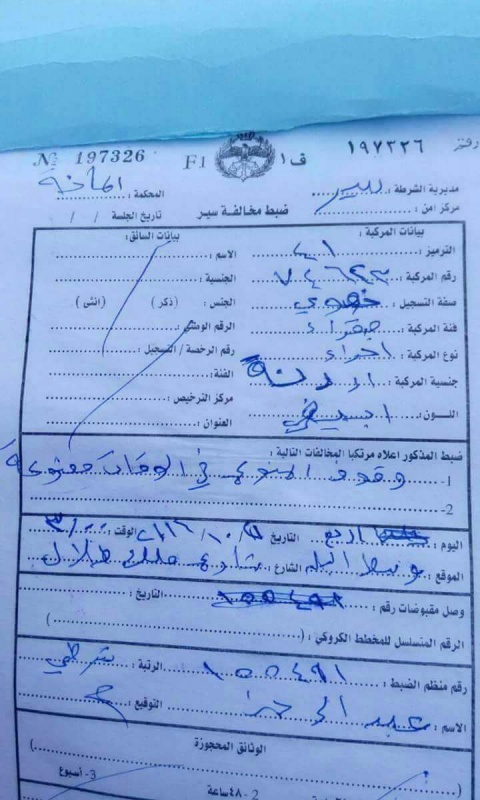 دفتر ١٩٧٣٢٦ ف ١ F1 № 197326
مديرية الشرطة : سير المحكمة : الأمانة
مركز أمن : ضبط مخالفة سير تاريخ الجلسة / /
بيانات المركبة : بيانات السائق :
الترميز : ٤١ الاسم :
رقم المركبة : الجنسية :
صفة التسجيل : خصوصي الجنس : ( ذكر ) ( انثى )
فئة المركبة : الرقم الوطني :
نوع المركبة : رقم الرخصة / التسجيل :
جنسية المركبة : اردنية الفئة :
اللون : ابيض مركز الترخيص :
العنوان :
ضبط المذكور اعلاه مرتكبا المخالفات التالية :
1- وقوف
2-
اليوم : اربع التاريخ الوقت : ٣/٠٠
الموقع : وسط البلد الشارع : شارع ملك طلال
وصل مقبوضات رقم : التاريخ :
الرقم المتسلسل للمخطط الكروكي : ( )
رقم منظم الضبط : ١٠٥٤٩١ الرتبة : شرطي
الاسم : عبد التوقيع :
الوثائق المحجوزة
( )
2- ٤٨ ساعة 3- أسبوع